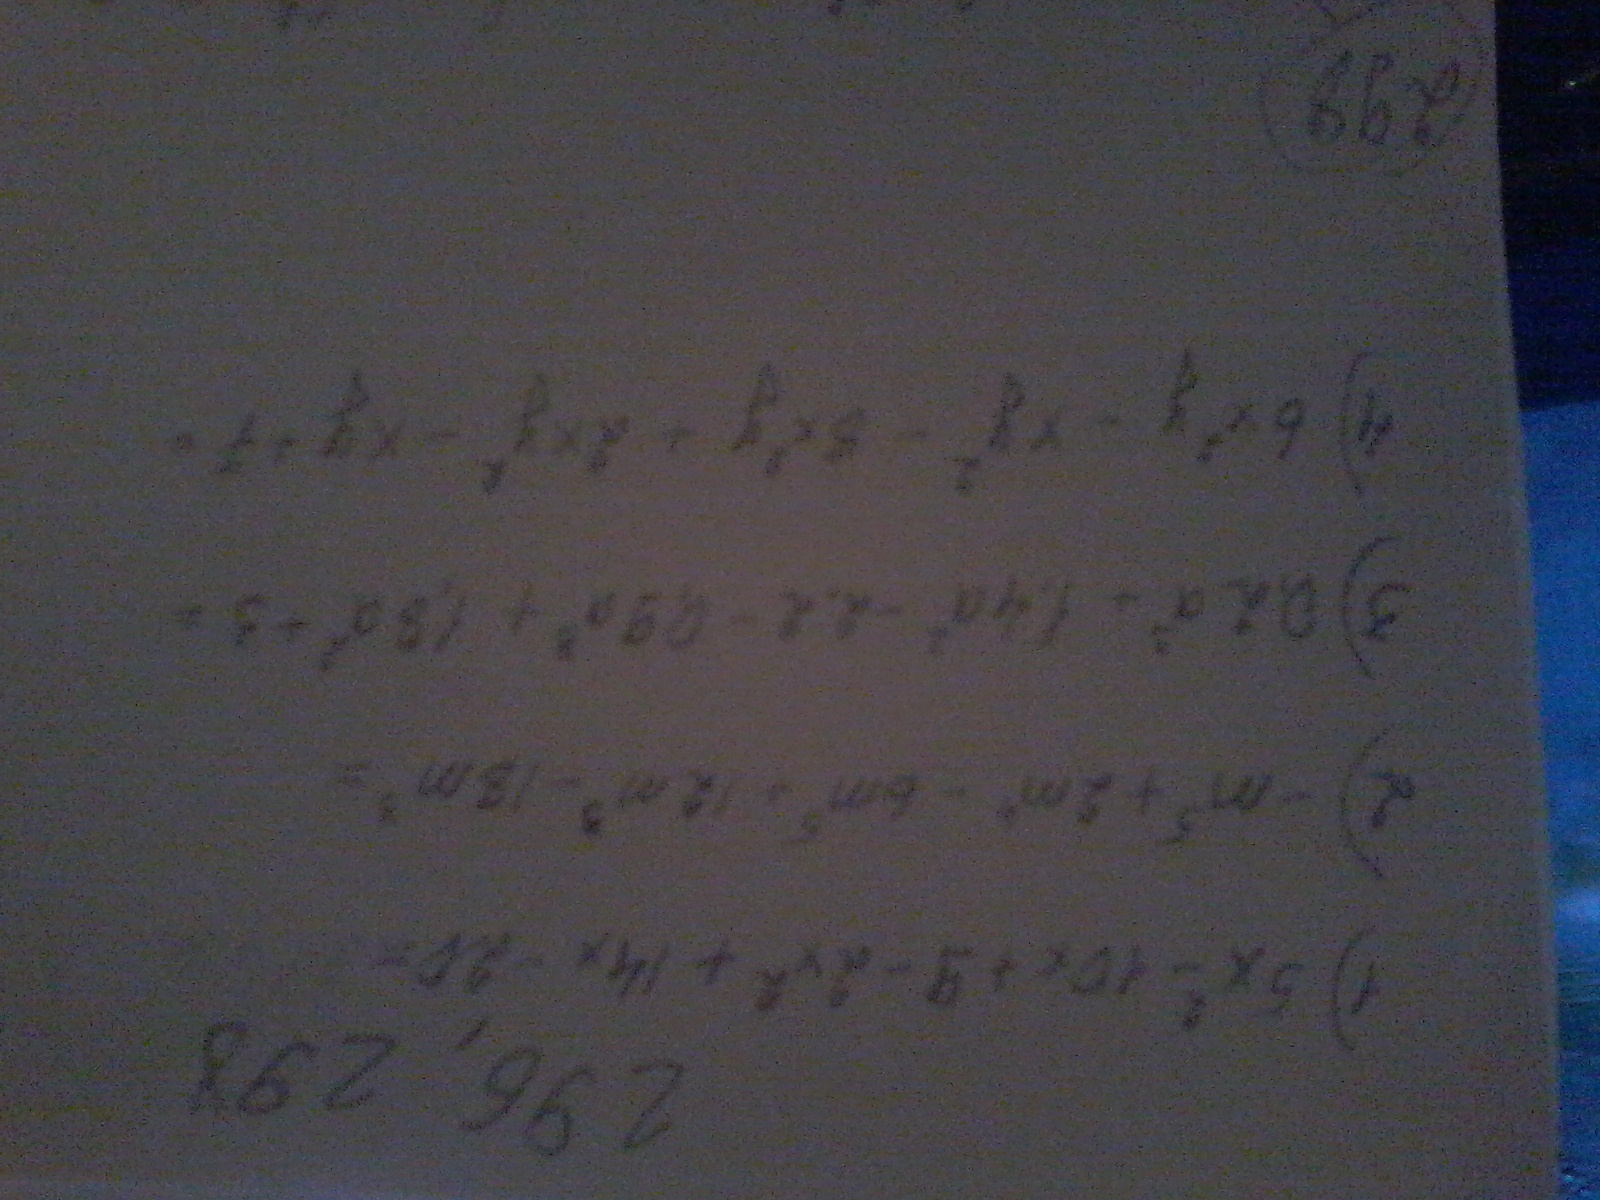 296, 298
1) 5x² - 10x + 9 - 2x² + 14x - 20 =
2) - m⁵ + 2m⁴ - 6m⁵ + 12m³ - 18m³ =
3) 0,2a³ + 1,4a² - 2,2 - 0,9a³ + 1,8a² + 3 =
4) 6x²y - xy² - 8x²y + 2xy² - xy + 7 =
299